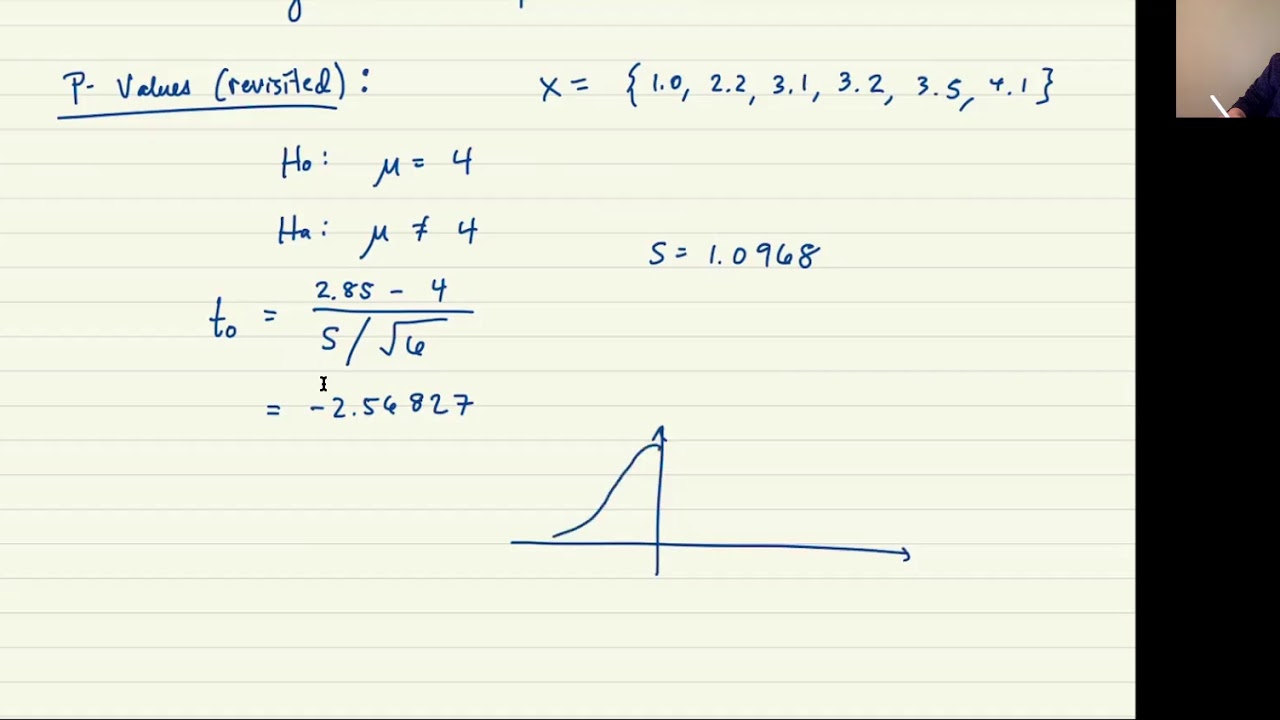 P- Values (revisited): X = {1.0, 2.2, 3.1, 3.2, 3.5, 4.1}
Ho: μ = 4
Ha: μ ≠ 4
S = 1.0968
to = 2.85 - 4 / S/√6
= -2.56827